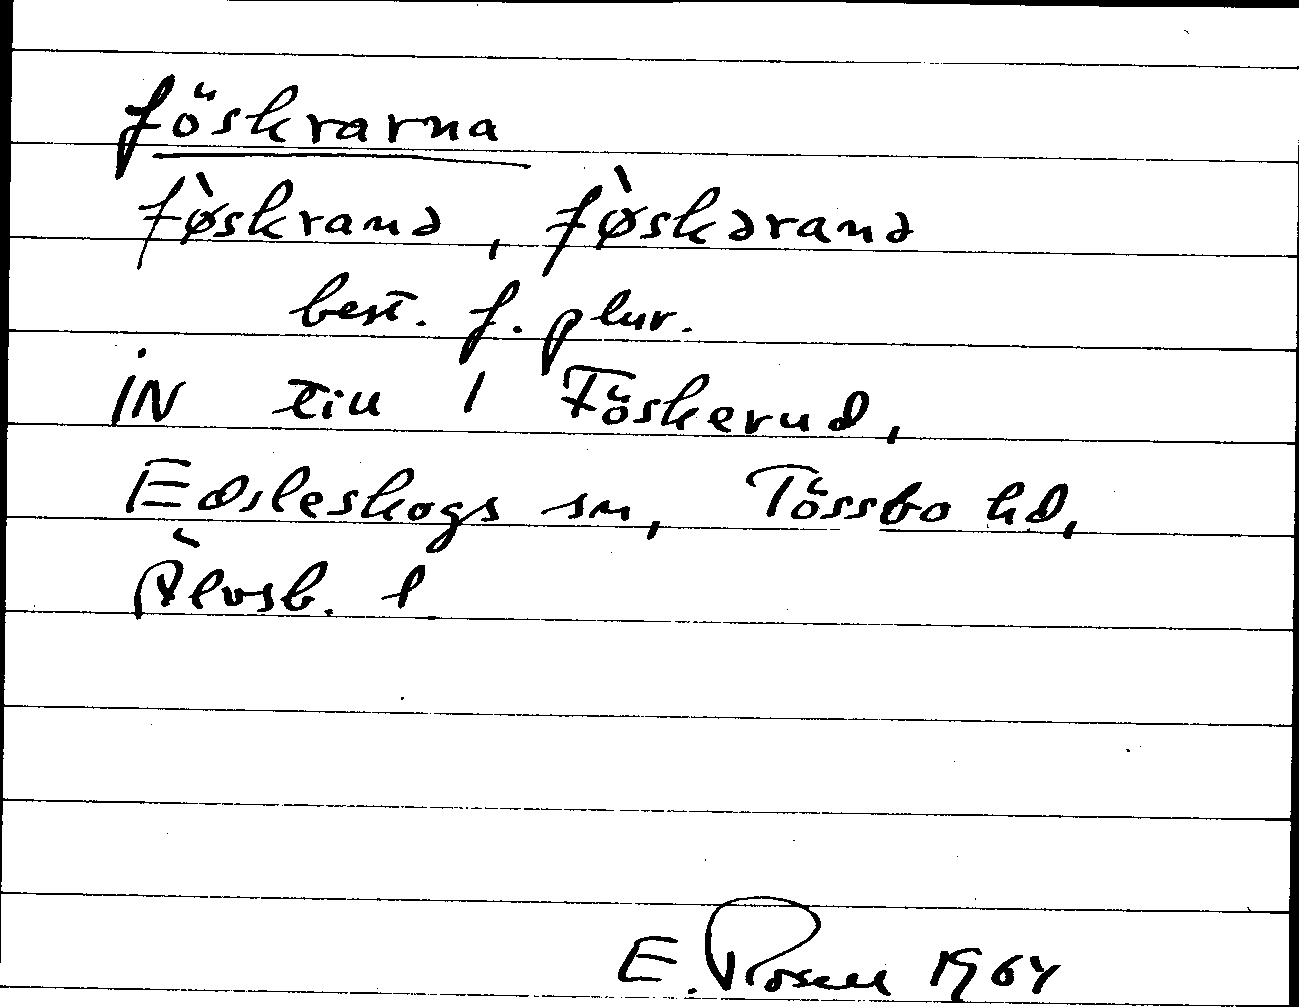 föskrarna
fø̀skranə, fø̀skəranə
best. f. plur.
IN till Föskerud,
Edsleskogs sn, Tössbo hd,
Älvsb. l
E. Rosell 1964